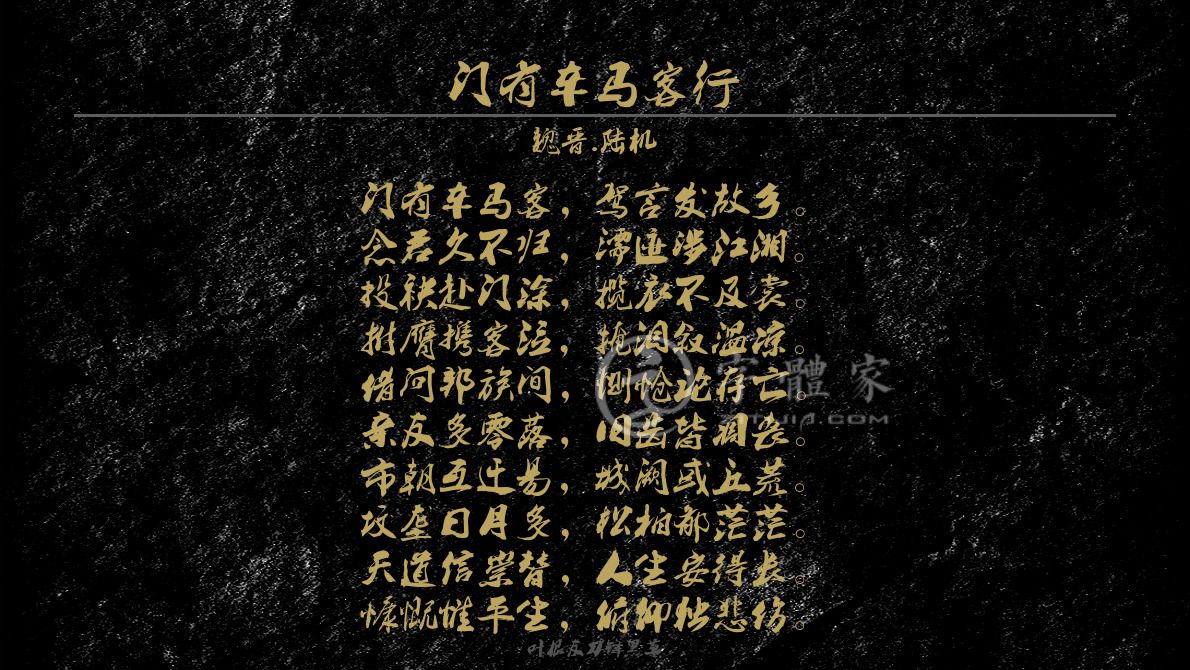 门有车马客行
魏晋.陆机
门有车马客，驾言发故乡。
念君久不归，濡迹涉江湘。
投袂赴门涂，揽衣不及裳。
拊膺携客泣，掩泪叙温凉。
借问邦族间，恻怆论存亡。
亲友多零落，旧齿皆凋丧。
市朝互迁易，城阙或丘荒。
坟垄日月多，松柏郁茫茫。
天道信崇替，人生安得长。
慷慨惟平生，俯仰独悲伤。
字體家
叶根友刀锋黑草